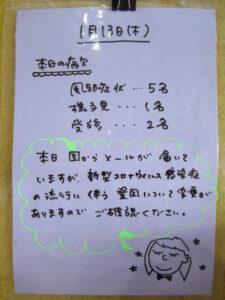 1月13日(木)
本日の病欠
風邪症状…5名
様子見…1名
受診…2名
本日 園からメールが 届いて
いますが、新型コロナウイルス感染症
の流行に伴う 登園について変更が
ありますので ご確認ください。